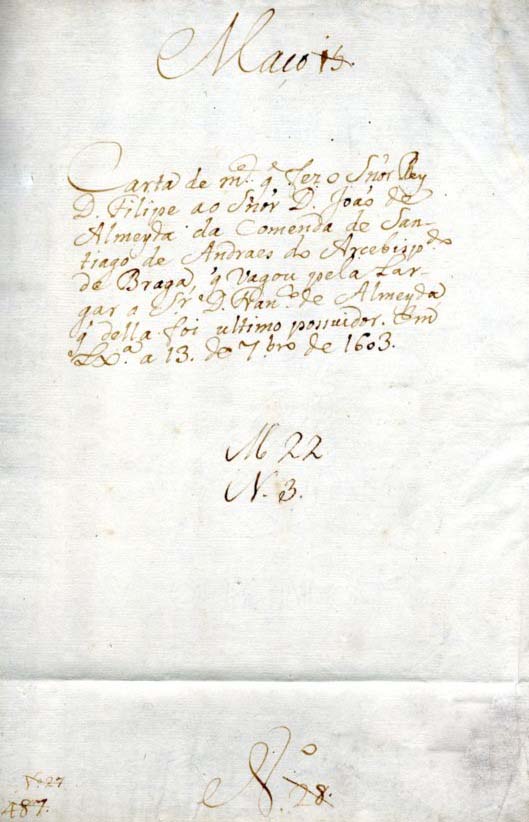 Maço
Carta de m.ce q̃ fez o Snõr Rey
D. Filipe ao Snõr D. João de
Almeyda da Comenda de San-
tiago de Andraes do Arcebisp.do
de Braga, q̃ vagou pela lar-
gar a D. de Almeyda
q̃ della foi ultimo possuidor. Em
Lx.ª a 13. de 7bro de 1603.
M 22
N. 3.
N.º 28.
N.º 27
487.